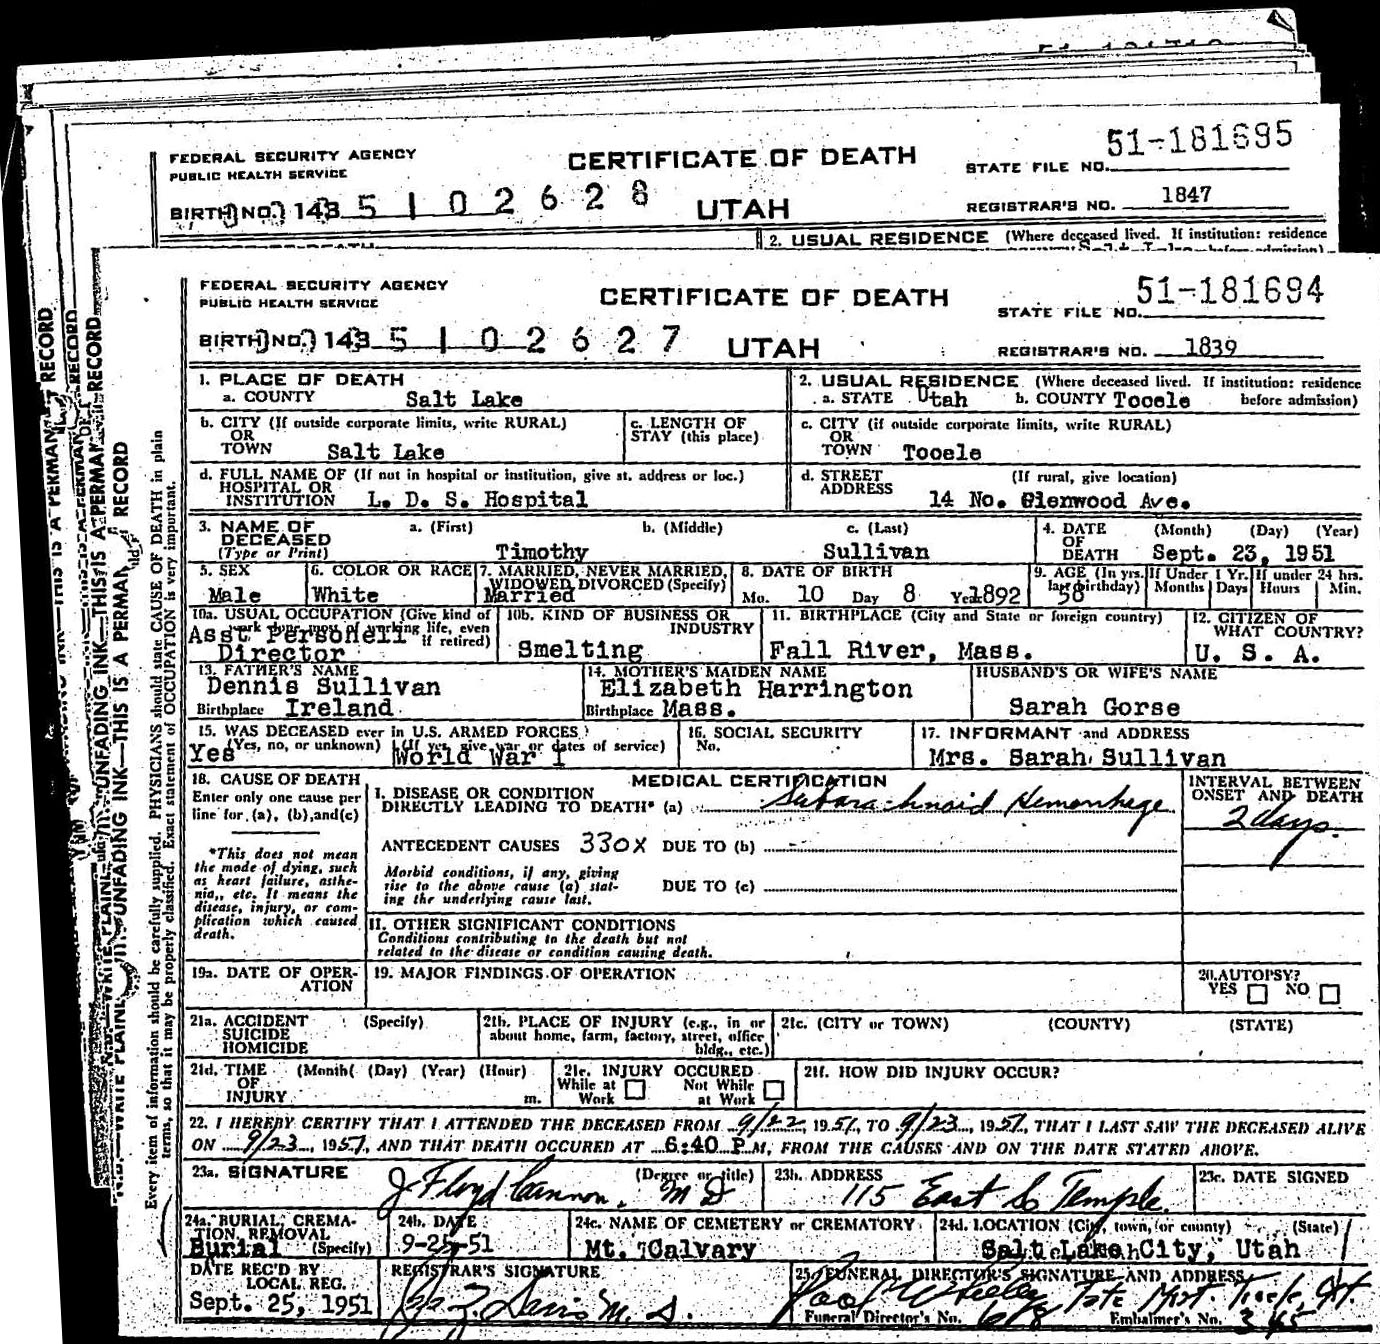 FEDERAL SECURITY AGENCY
PUBLIC HEALTH SERVICE
CERTIFICATE OF DEATH
STATE FILE NO. 51-181695
BIRTH NO. 143 5 1 0 2 6 2 8 UTAH
REGISTRAR'S NO. 1847
2. USUAL RESIDENCE (Where deceased lived. If institution: residence
FEDERAL SECURITY AGENCY
PUBLIC HEALTH SERVICE
CERTIFICATE OF DEATH
STATE FILE NO. 51-181694
BIRTH NO. 143 5 1 0 2 6 2 7 UTAH
REGISTRAR'S NO. 1839
1. PLACE OF DEATH
a. COUNTY Salt Lake
2. USUAL RESIDENCE (Where deceased lived. If institution: residence
a. STATE Utah b. COUNTY Tooele before admission)
b. CITY (If outside corporate limits, write RURAL)
OR
TOWN Salt Lake
c. LENGTH OF
STAY (this place)
c. CITY (if outside corporate limits, write RURAL)
OR
TOWN Tooele
d. FULL NAME OF (If not in hospital or institution, give st. address or loc.)
HOSPITAL OR
INSTITUTION L. D. S. Hospital
d. STREET (If rural, give location)
ADDRESS
14 No. Glenwood Ave.
3. NAME OF a. (First) b. (Middle) c. (Last)
DECEASED
(Type or Print) Timothy Sullivan
4. DATE (Month) (Day) (Year)
OF
DEATH Sept. 23, 1951
5. SEX
Male
6. COLOR OR RACE
White
7. MARRIED, NEVER MARRIED,
WIDOWED DIVORCED (Specify)
Married
8. DATE OF BIRTH
Mo. 10 Day 8 Year 1892
9. AGE (In yrs. If Under 1 Yr. If under 24 hrs.
last birthday) Months Days Hours Min.
58
10a. USUAL OCCUPATION (Give kind of
work done most of working life, even
if retired)
Asst Personell
Director
10b. KIND OF BUSINESS OR
INDUSTRY
Smelting
11. BIRTHPLACE (City and State or foreign country)
Fall River, Mass.
12. CITIZEN OF
WHAT COUNTRY?
U. S. A.
13. FATHER'S NAME
Dennis Sullivan
Birthplace Ireland
14. MOTHER'S MAIDEN NAME
Elizabeth Harrington
Birthplace Mass.
HUSBAND'S OR WIFE'S NAME
Sarah Gorse
15. WAS DECEASED ever in U.S. ARMED FORCES?
(Yes, no, or unknown) (If yes, give war or dates of service)
Yes World War I
16. SOCIAL SECURITY
No.
17. INFORMANT and ADDRESS
Mrs. Sarah Sullivan
18. CAUSE OF DEATH
Enter only one cause per
line for (a), (b), and (c)
*This does not mean
the mode of dying, such
as heart failure, asthe-
nia,, etc. It means the
disease, injury, or com-
plication which caused
death.
MEDICAL CERTIFICATION
I. DISEASE OR CONDITION
DIRECTLY LEADING TO DEATH* (a) Subarachnoid Hemorrhage
ANTECEDENT CAUSES 330X DUE TO (b)
Morbid conditions, if any, giving
rise to the above cause (a) stat-
ing the underlying cause last.
DUE TO (c)
II. OTHER SIGNIFICANT CONDITIONS
Conditions contributing to the death but not
related to the disease or condition causing death.
INTERVAL BETWEEN
ONSET AND DEATH
2 days.
19a. DATE OF OPER-
ATION
19. MAJOR FINDINGS OF OPERATION
20. AUTOPSY?
YES NO
21a. ACCIDENT (Specify)
SUICIDE
HOMICIDE
21b. PLACE OF INJURY (e.g., in or
about home, farm, factory, street, office
bldg., etc.)
21c. (CITY or TOWN) (COUNTY) (STATE)
21d. TIME (Month( (Day) (Year) (Hour)
OF
INJURY m.
21e. INJURY OCCURED
While at Not While
Work at Work
21f. HOW DID INJURY OCCUR?
22. I HEREBY CERTIFY THAT I ATTENDED THE DECEASED FROM 9/22, 1951, TO 9/23, 1951, THAT I LAST SAW THE DECEASED ALIVE
ON 9/23, 1951, AND THAT DEATH OCCURED AT 6:40 P.M, FROM THE CAUSES AND ON THE DATE STATED ABOVE.
23a. SIGNATURE (Degree or title)
J Floyd Cannon, M D
23b. ADDRESS
115 East So Temple.
23c. DATE SIGNED
24a. BURIAL, CREMA-
TION, REMOVAL
Burial (Specify)
24b. DATE
9-25-51
24c. NAME OF CEMETERY or CREMATORY
Mt. Calvary
24d. LOCATION (City, town, or county) (State)
Salt Lake City, Utah
DATE REC'D BY
LOCAL REG.
Sept. 25, 1951
REGISTRAR'S SIGNATURE
Davis M. D.
25. FUNERAL DIRECTOR'S SIGNATURE AND ADDRESS
Tate Mort. Tooele, Ut.
Funeral Director's No. 618 Embalmer's No. 345
RECORD
UNFADING INK—THIS IS A PERMANENT RECORD
Every item of information should be carefully supplied. PHYSICIANS should state CAUSE OF DEATH in plain
terms, so that it may be properly classified. Exact statement of OCCUPATION is very important.